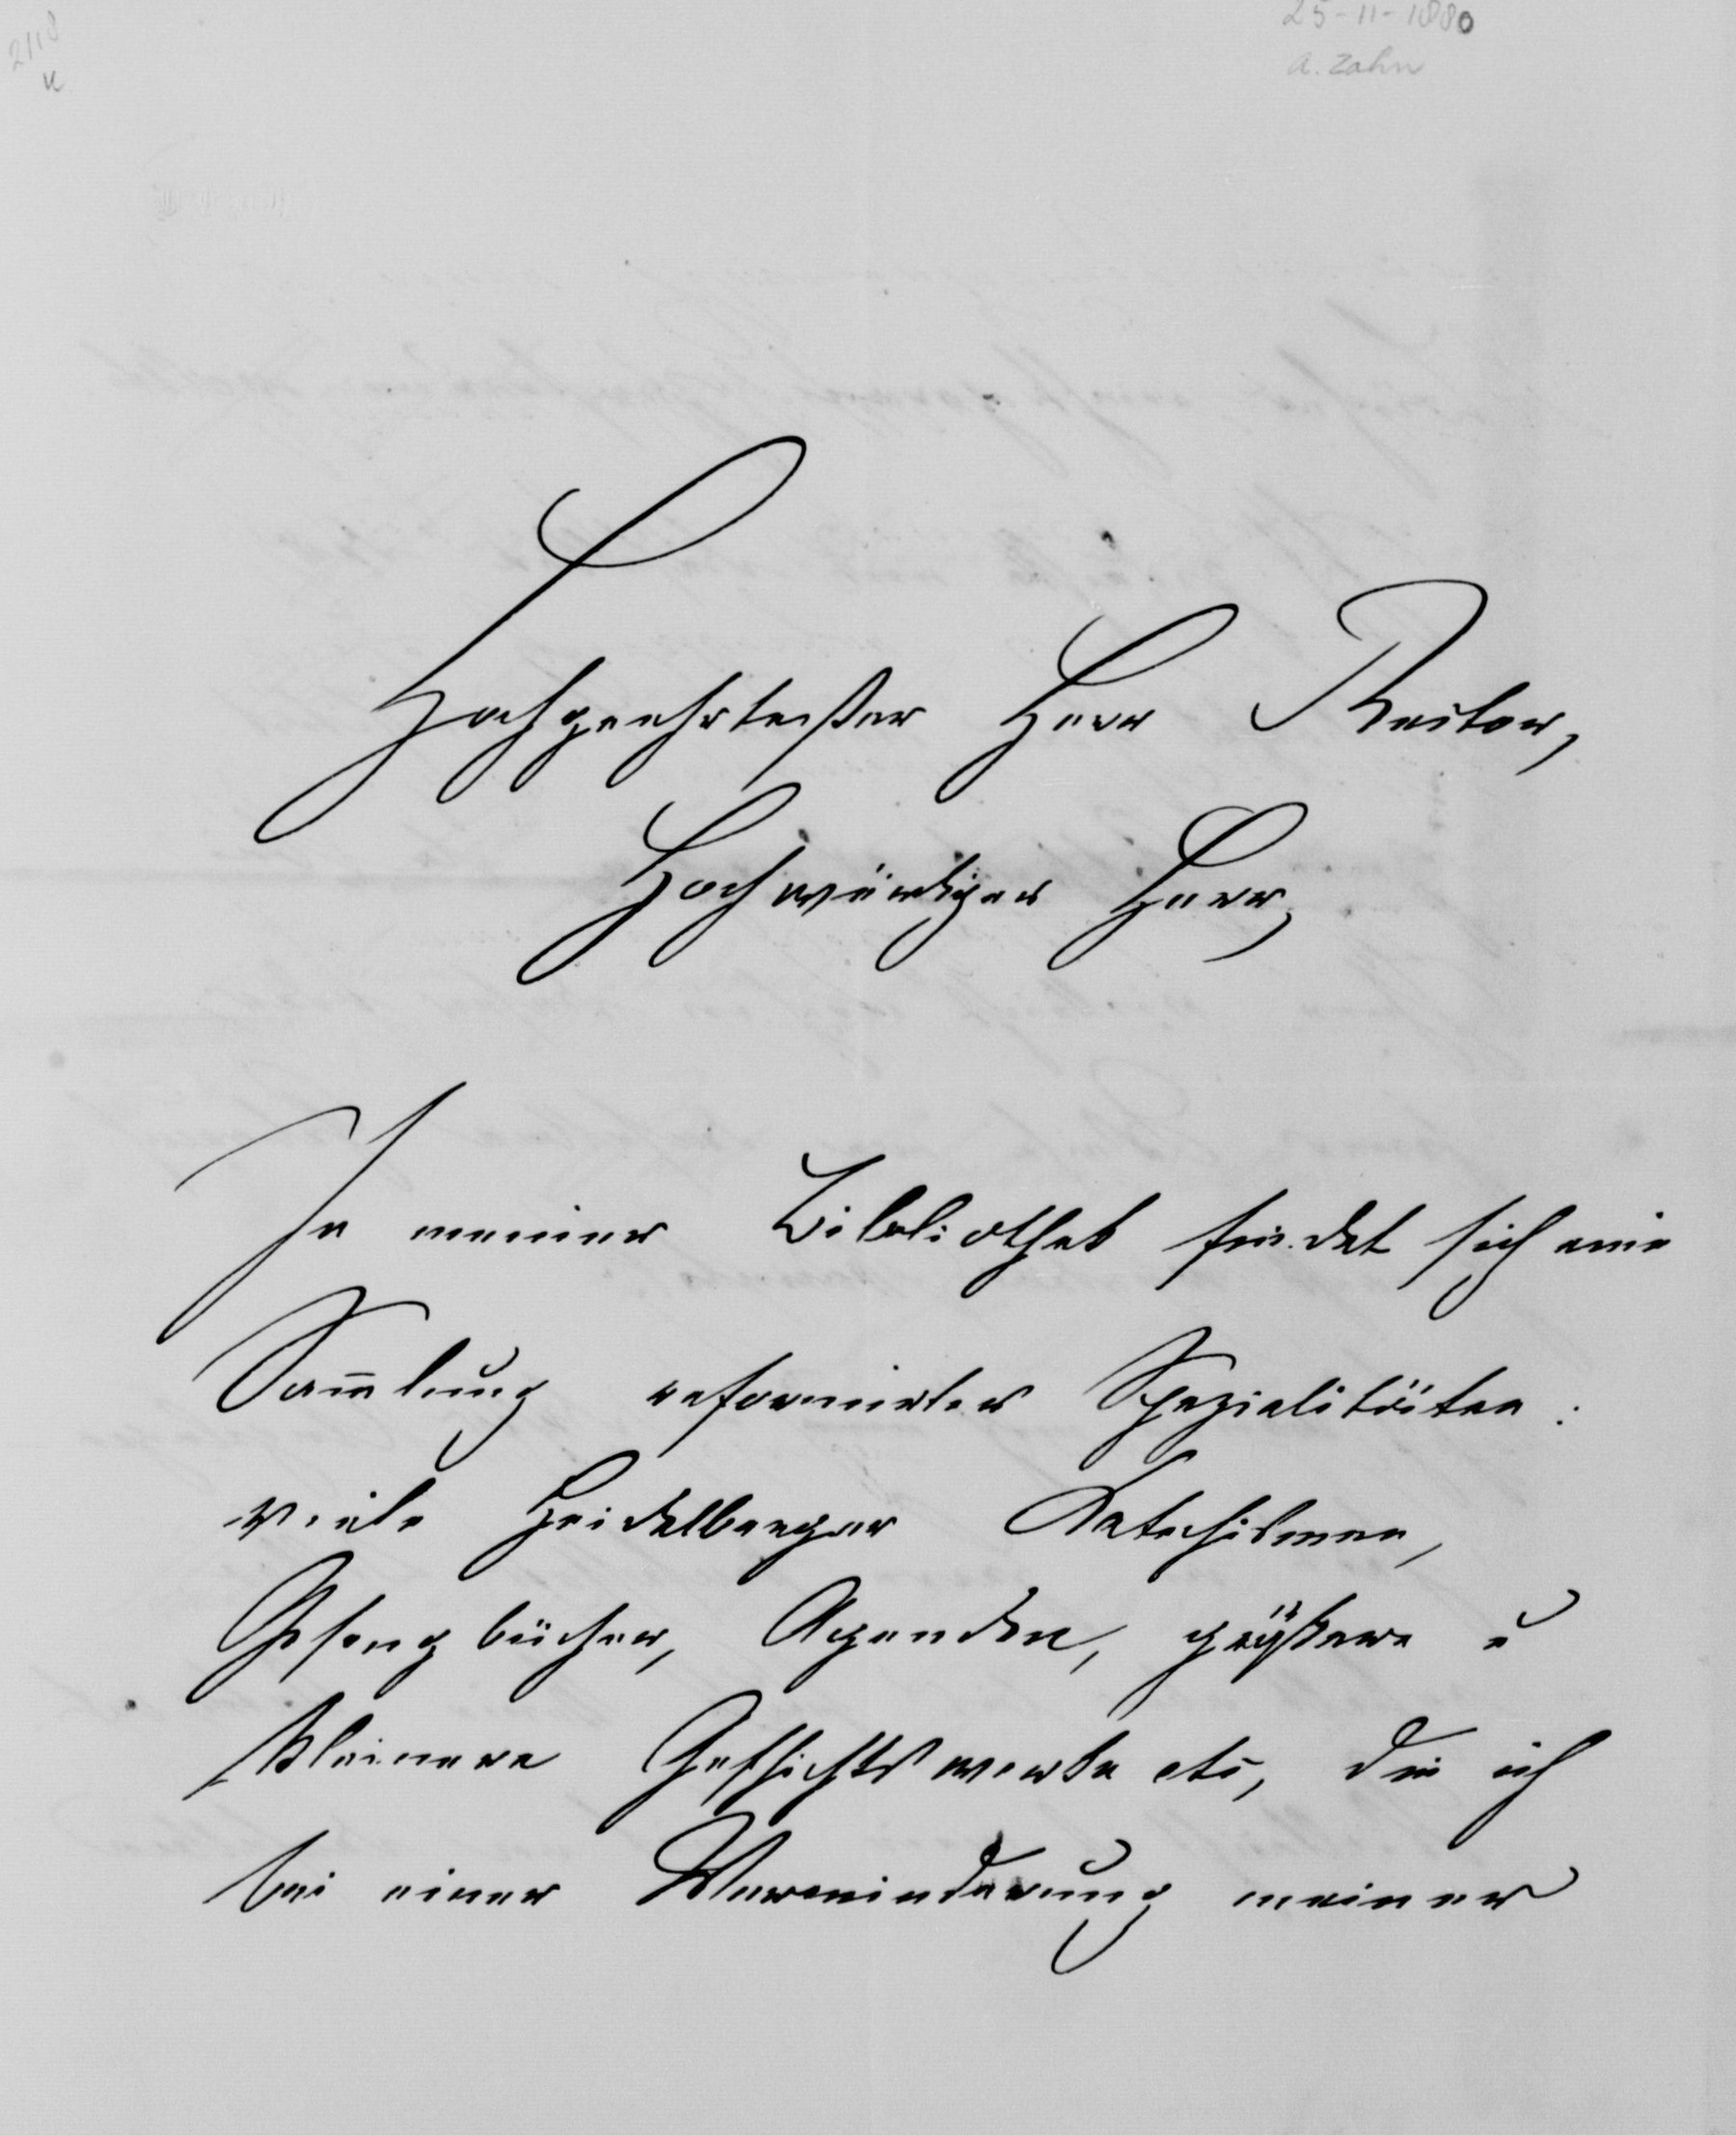 25-11-1880
a. Zahn
Hochgeehrtester Herr Rector,
Hochwürdiger Herr,
In meiner Bibliothek findet sich eine
Sam̄lung reformirter Spezialitäten:
viele Heidelberger Katechismen,
Gesangbücher, Agenden, größere u
kleinere Geschichtswerke etc, die ich
bei einer Verminderung meiner